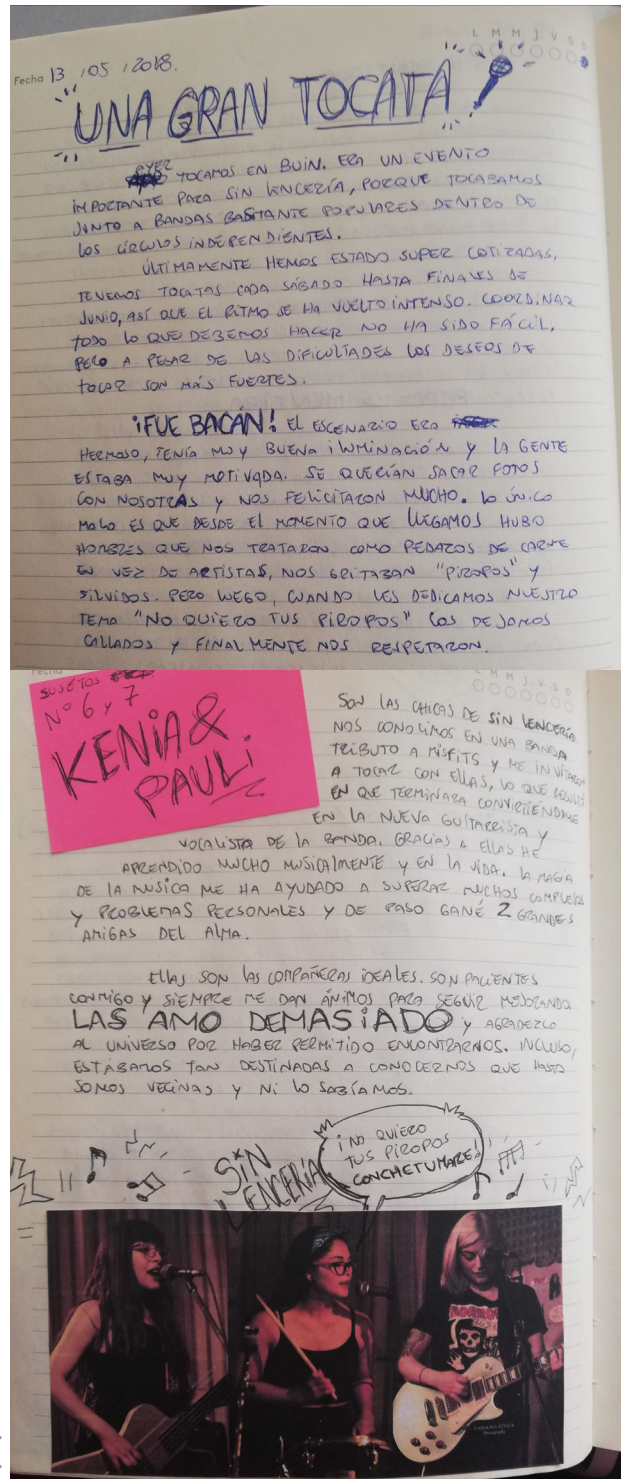 L M M J V S D
Fecha 13 / 05 / 2018.
UNA GRAN TOCATA
AYER TOCAMOS EN BUIN. ERA UN EVENTO
IMPORTANTE PARA SIN LENCERÍA, PORQUE TOCABAMOS
JUNTO A BANDAS BASTANTE POPULARES DENTRO DE
LOS CÍRCULOS INDEPENDIENTES.
ÚLTIMAMENTE HEMOS ESTADO SUPER COTIZADAS,
TENEMOS TOCATAS CADA SÁBADO HASTA FINALES DE
JUNIO, ASÍ QUE EL RITMO SE HA VUELTO INTENSO. COORDINAR
TODO LO QUE DEBEMOS HACER NO HA SIDO FÁCIL,
PERO A PESAR DE LAS DIFICULTADES LOS DESEOS DE
TOCAR SON MÁS FUERTES.
¡FUE BACÁN! EL ESCENARIO ERA
HERMOSO, TENÍA MUY BUENA ILUMINACIÓN Y LA GENTE
ESTABA MUY MOTIVADA. SE QUERÍAN SACAR FOTOS
CON NOSOTRAS Y NOS FELICITARON MUCHO. LO ÚNICO
MALO ES QUE DESDE EL MOMENTO QUE LLEGAMOS HUBO
HOMBRES QUE NOS TRATARON COMO PEDAZOS DE CARNE
EN VEZ DE ARTISTAS, NOS GRITABAN "PIROPOS" Y
SILVIDOS. PERO LUEGO, CUANDO LES DEDICAMOS NUESTRO
TEMA "NO QUIERO TUS PIROPOS" LOS DEJAMOS
CALLADOS Y FINALMENTE NOS RESPETARON.
Fecha
L M M J V S D
SUJETOS
N° 6 Y 7
KENIA &
PAULI
SON LAS CHICAS DE SIN LENCERÍA.
NOS CONOCIMOS EN UNA BANDA
TRIBUTO A MISFITS Y ME INVITARON
A TOCAR CON ELLAS, LO QUE RESULTÓ
EN QUE TERMINARA CONVIRTIÉNDOME
EN LA NUEVA GUITARRISTA Y
VOCALISTA DE LA BANDA. GRACIAS A ELLAS HE
APRENDIDO MUCHO MUSICALMENTE Y EN LA VIDA. LA MAGIA
DE LA MUSICA ME HA AYUDADO A SUPERAR MUCHOS COMPLEJOS
Y PROBLEMAS PERSONALES Y DE PASO GANÉ 2 GRANDES
AMIGAS DEL ALMA.
ELLAS SON LAS COMPAÑERAS IDEALES. SON PACIENTES
CONMIGO Y SIEMPRE ME DAN ÁNIMOS PARA SEGUIR MEJORANDO.
LAS AMO DEMASIADO Y AGRADEZCO
AL UNIVERSO POR HABER PERMITIDO ENCONTRARNOS. INCLUSO,
ESTÁBAMOS TAN DESTINADAS A CONOCERNOS QUE HASTA
SOMOS VECINAS Y NI LO SABÍAMOS.
SIN
LENCERÍA
¡NO QUIERO
TUS PIROPOS
CONCHETUMARE!